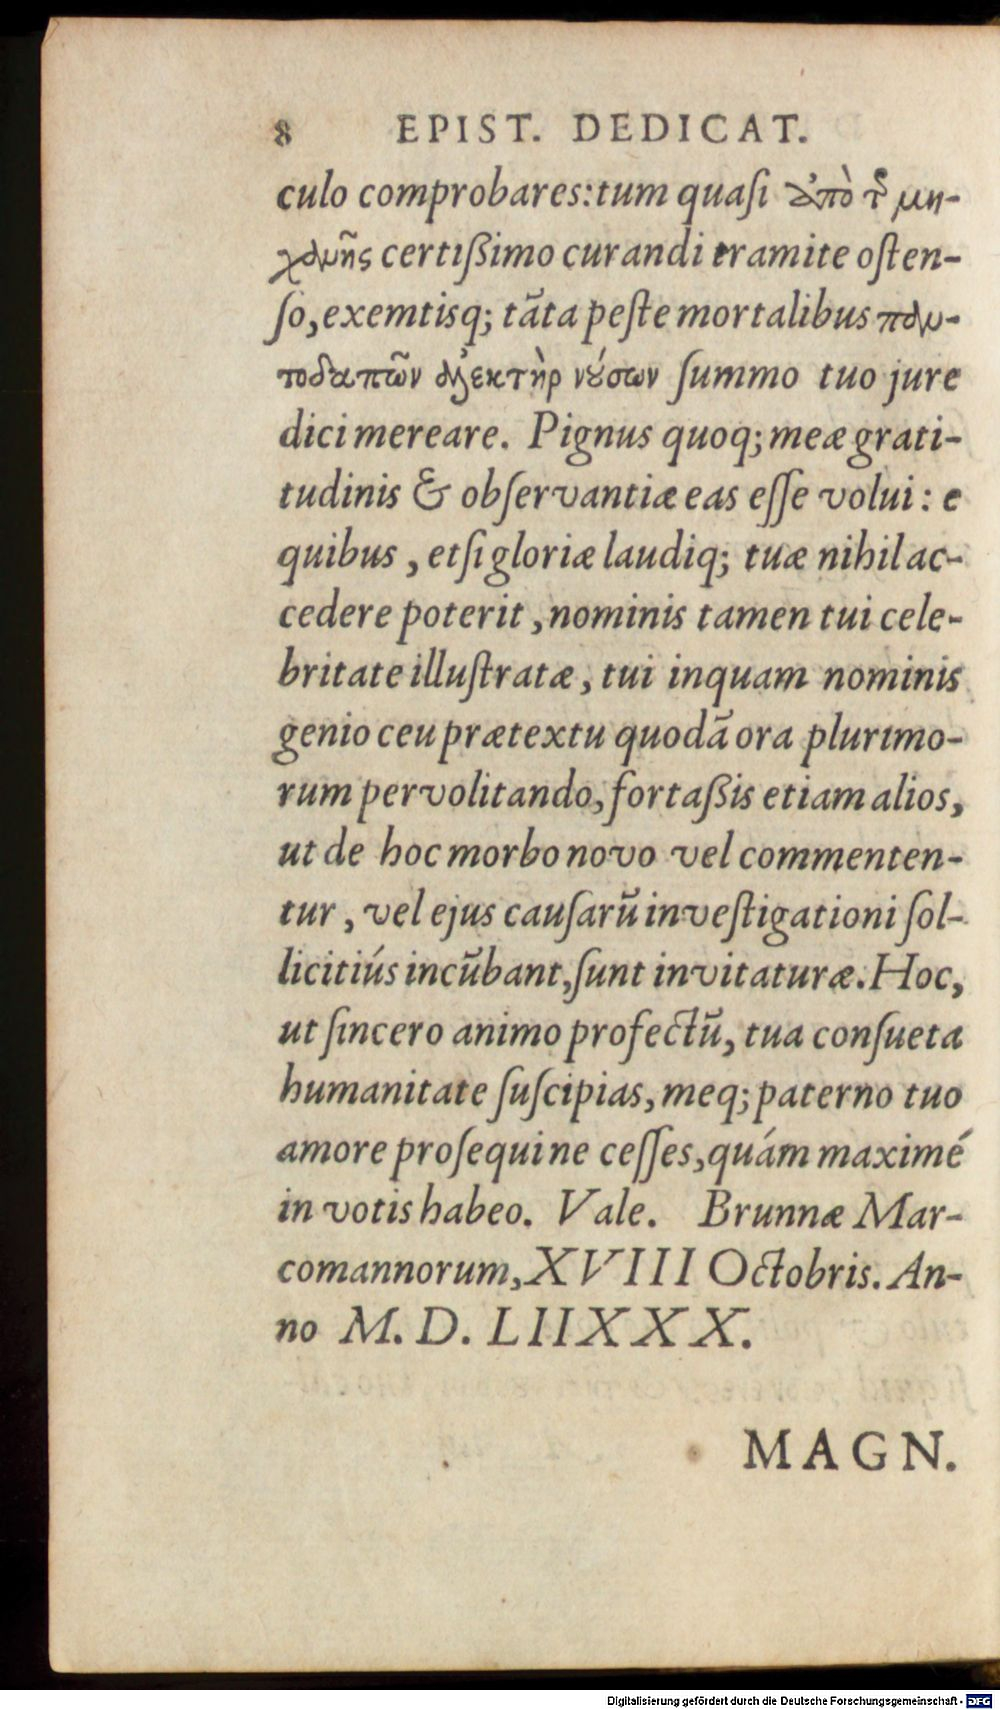 8 EPIST. DEDICAT.
culo comprobares: tum quasi ἀπὸ τ͂ μη-
χανῆς certißimo curandi tramite osten-
so, exemtisq; tãta peste mortalibus παν-
τοδαπῶν ἀλεκτὴρ νούσων summo tuo jure
dici mereare. Pignus quoq; meæ grati-
tudinis & observantiæ eas esse volui: e
quibus, etsi gloriæ laudiq; tuæ nihil ac-
cedere poterit, nominis tamen tui cele-
britate illustratæ, tui inquam nominis
genio ceu prætextu quodã ora plurimo-
rum pervolitando, fortaßis etiam alios,
ut de hoc morbo novo vel commenten-
tur, vel ejus causarũ investigationi sol-
licitiús incũbant, sunt invitaturæ. Hoc,
ut sincero animo profectũ, tua consueta
humanitate suscipias, meq; paterno tuo
amore prosequi ne cesses, quám maximé
in votis habeo. Vale. Brunnæ Mar-
comannorum, XVIII Octobris. An-
no M. D. LIIXXX.
MAGN.
Digitalisierung gefördert durch die Deutsche Forschungsgemeinschaft - DFG